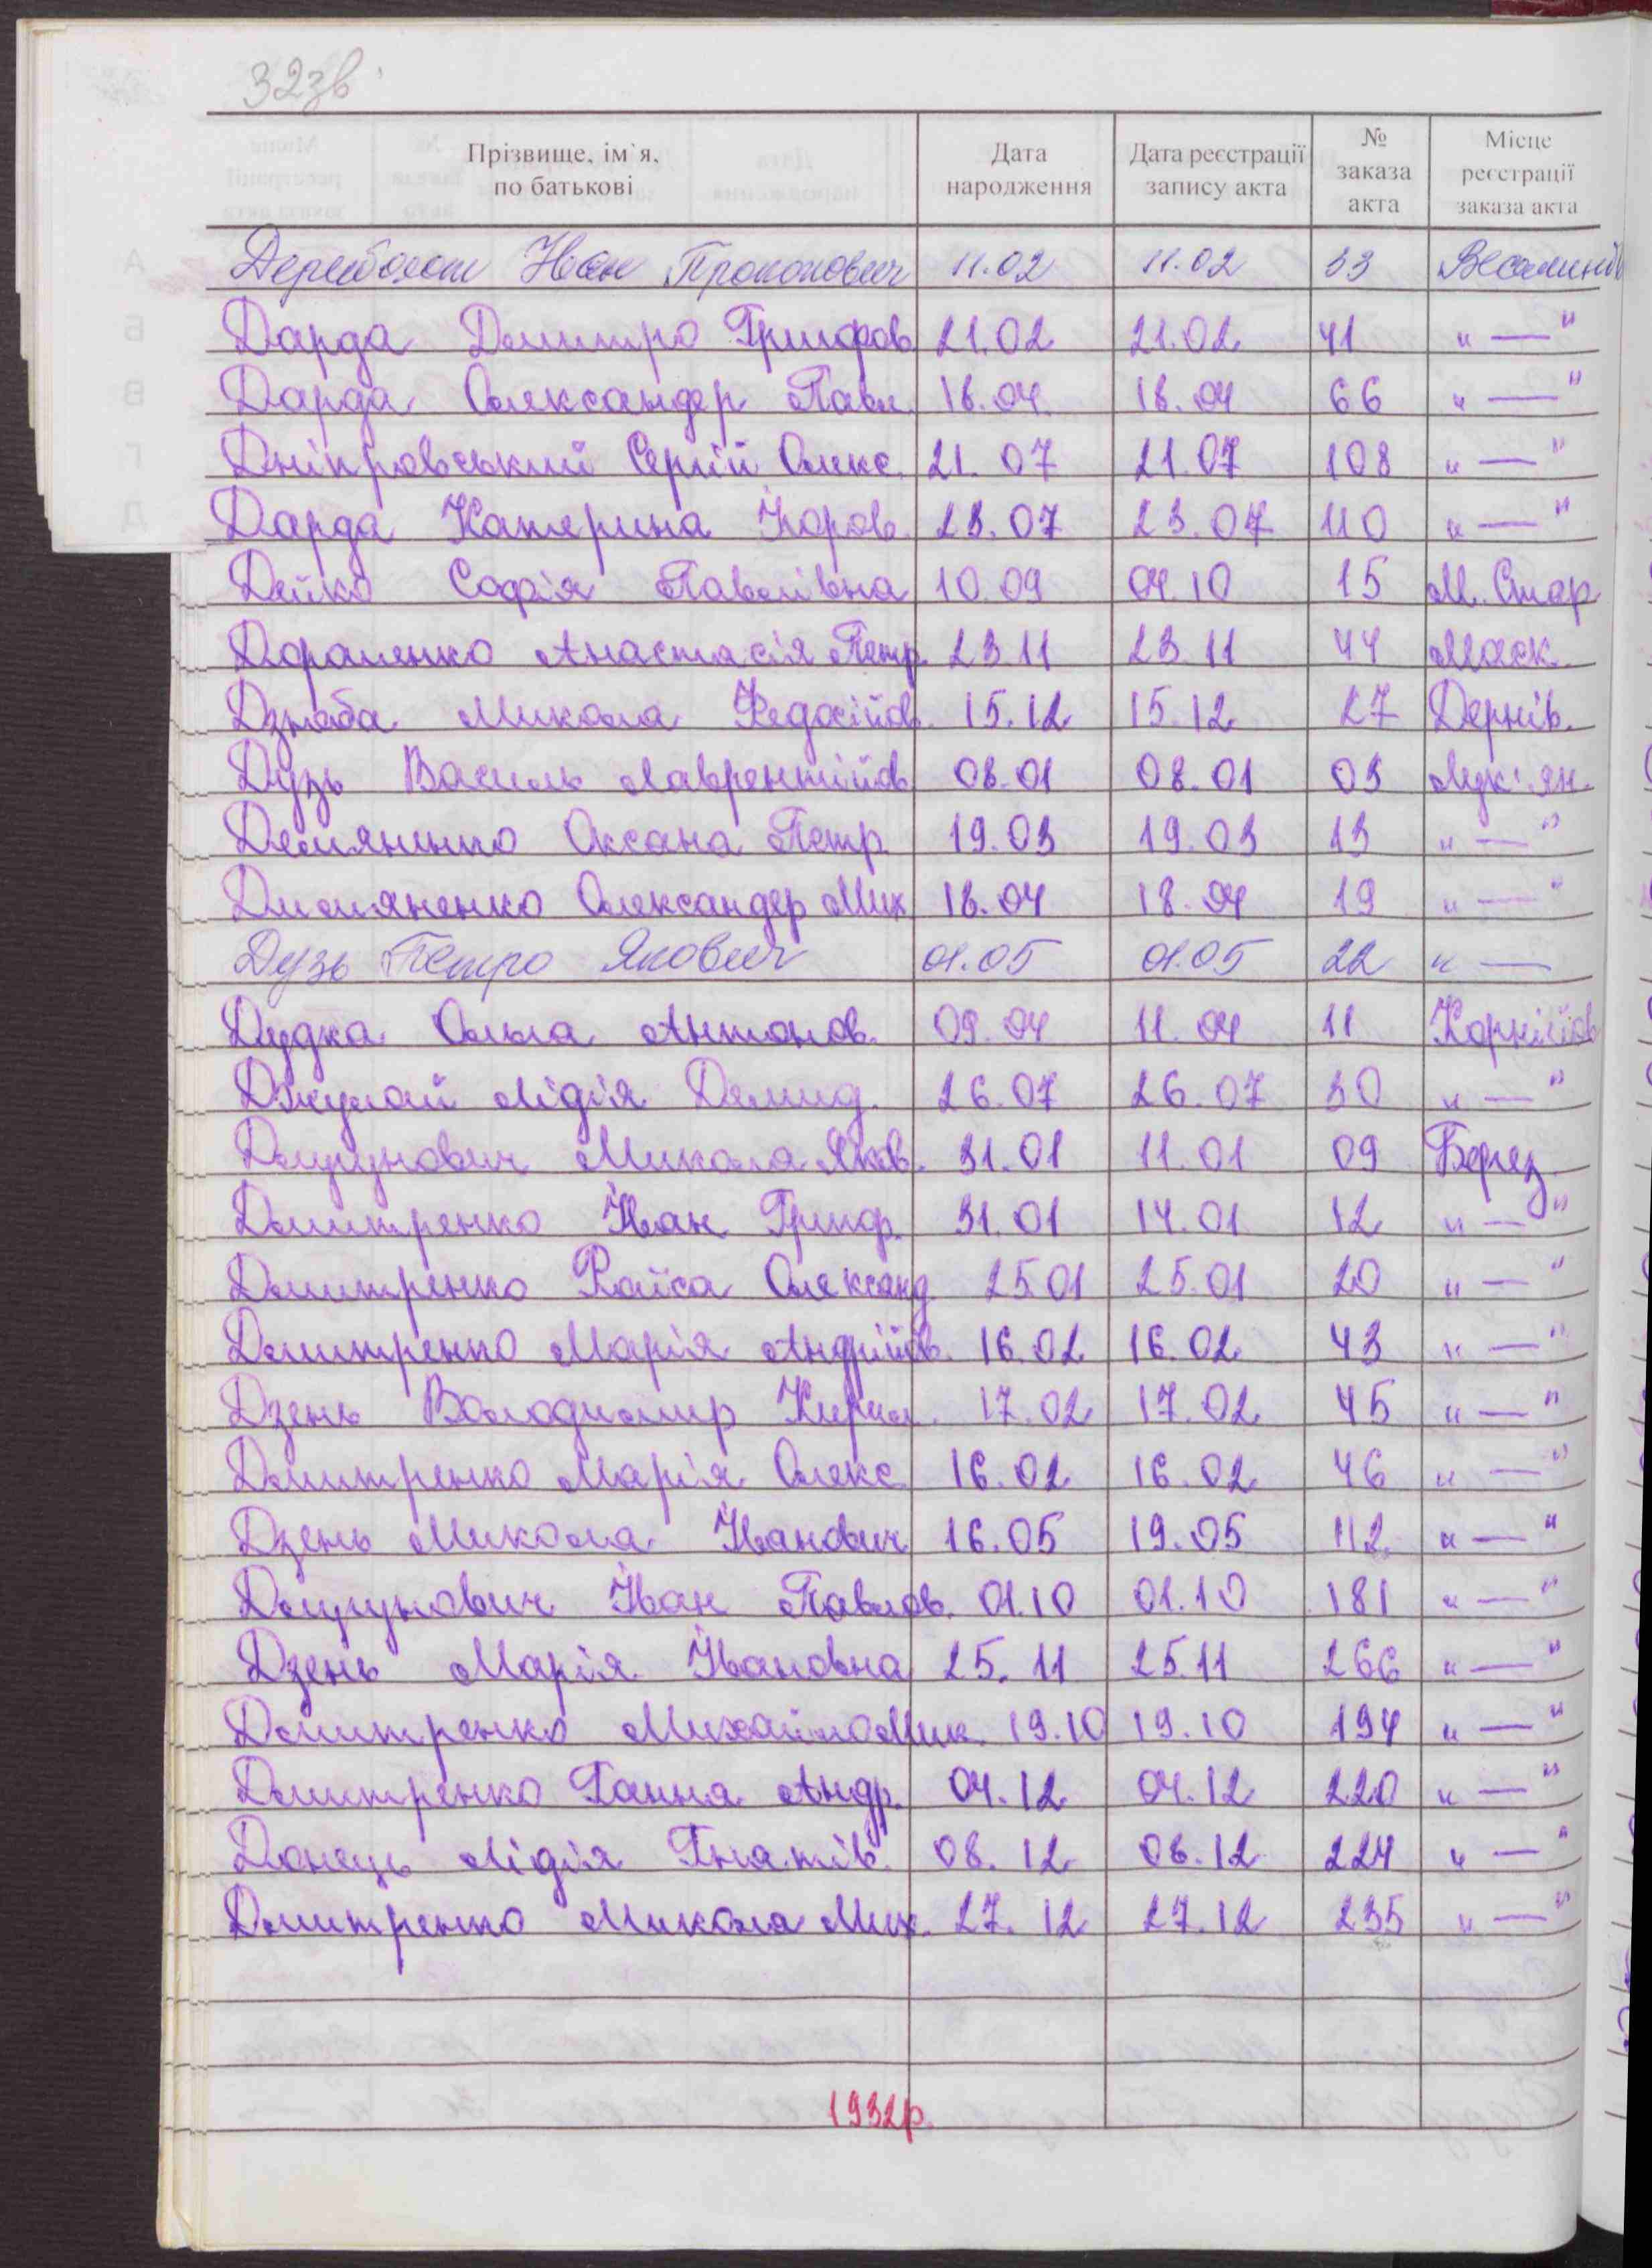 32зв
Прізвище, ім`я, по батькові | Дата народження | Дата реєстрації запису акта | № заказа акта | Місце реєстрації заказа акта
Іван Прокопович 11.02 11.02 33
Дарда Дмитро Григоров 21.02 21.02 41 "—"
Дарда Олександер Павл. 18.04 18.04 66 "—"
Дніпровський Сергій Олекс. 21.07 21.07 108 "—"
Дарда Катерина 23.07 23.07 110 "—"
Дейко Софія Павлівна 10.09 04.10 15 М. Стар
Дораленко Анастасія Петр. 23.11 23.11 44 Маск.
Дзюба Микола Федосійов. 15.12 15.12 27 Дернів.
Дузь Василь Лаврентійов 08.01 08.01 03 Лук'ян.
Демяненко Оксана Петр. 19.03 19.03 13 "—"
Димяненко Олександер Мих 18.04 18.04 19 "—"
Дузь Петро Якович 01.05 01.05 22 "—
Дудка Ольга Антонов. 09.04 11.04 11 Корніїов
Джулай Лідія Демид. 26.07 26.07 30 "—"
Микола Яков. 31.01 11.01 09 Берез
Дмитренко Іван Григор. 31.01 14.01 12 "—"
Дмитренко Раїса Олександ 25.01 25.01 20 "—"
Дмитренко Марія Андріїв. 16.02 16.02 43 "—"
Дзень Володимир Кирил. 17.02 17.02 45 "—"
Дмитренко Марія Олекс 16.02 16.02 46 "—"
Дзень Микола Іванович 16.05 19.05 112 "—"
Іван Павлов. 01.10 01.10 181 "—"
Дзень Марія Івановна 25.11 25.11 266 "—"
Дмитренко Михайло Мик. 19.10 19.10 194 "—"
Дмитренко Ганна Андр. 04.12 04.12 220 "—"
Донець Лідія Гнатів. 08.12 08.12 224 "—"
Дмитренко Микола Мих. 27.12 27.12 235 "—"
1932р.